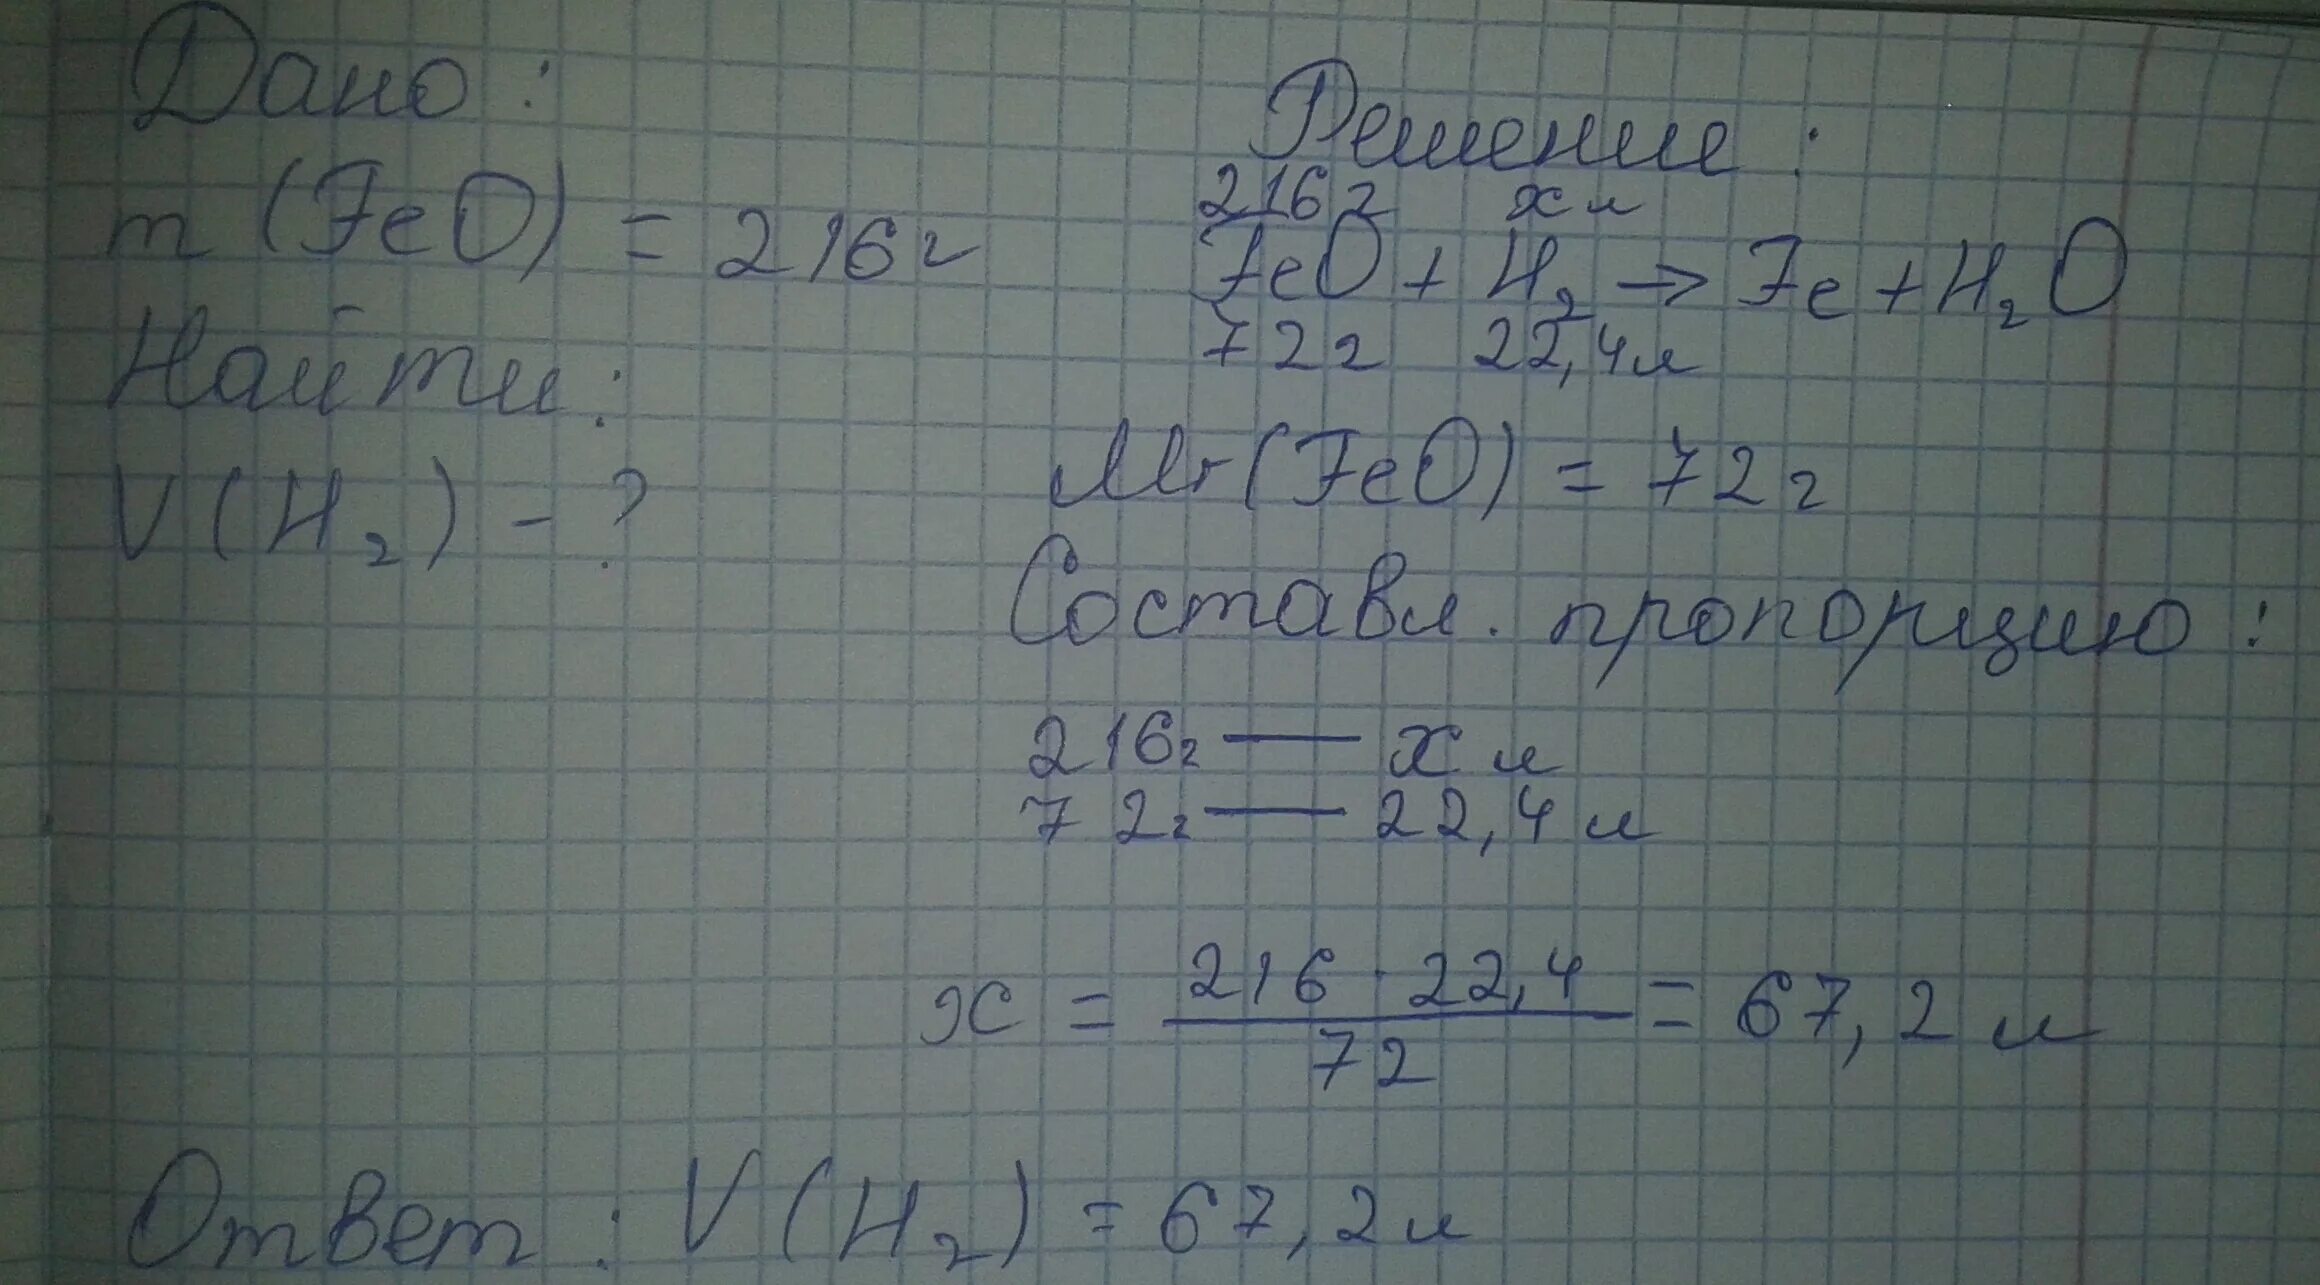 Дано:
m (FeO) = 216 г
Найти:
V (H₂) - ?
Решение:
216 г х л
FeO + H₂ → Fe + H₂O
72 г 22,4 л
Mr (FeO) = 72 г
Составл. пропорцию:
216 г — х л
72 г — 22,4 л
x = 216 · 22,4 / 72 = 67,2 л
Ответ: V (H₂) = 67,2 л